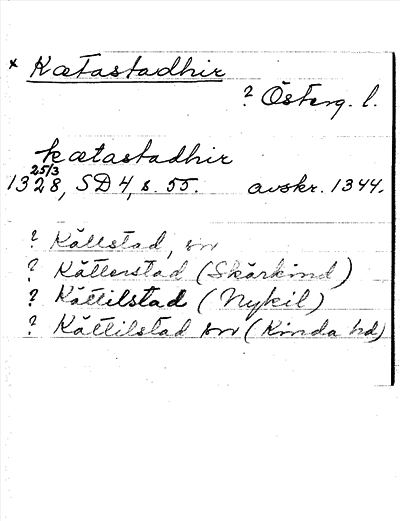 x Kætastadhir
? Österg. l.
kætastadhir
25/3
1328, SD 4, s. 55. avskr. 1344.
? Källstad, sn
? Kätterstad (Skärkind)
? Kättilstad (Nykil)
? Kättilstad sn (Kinda hd)